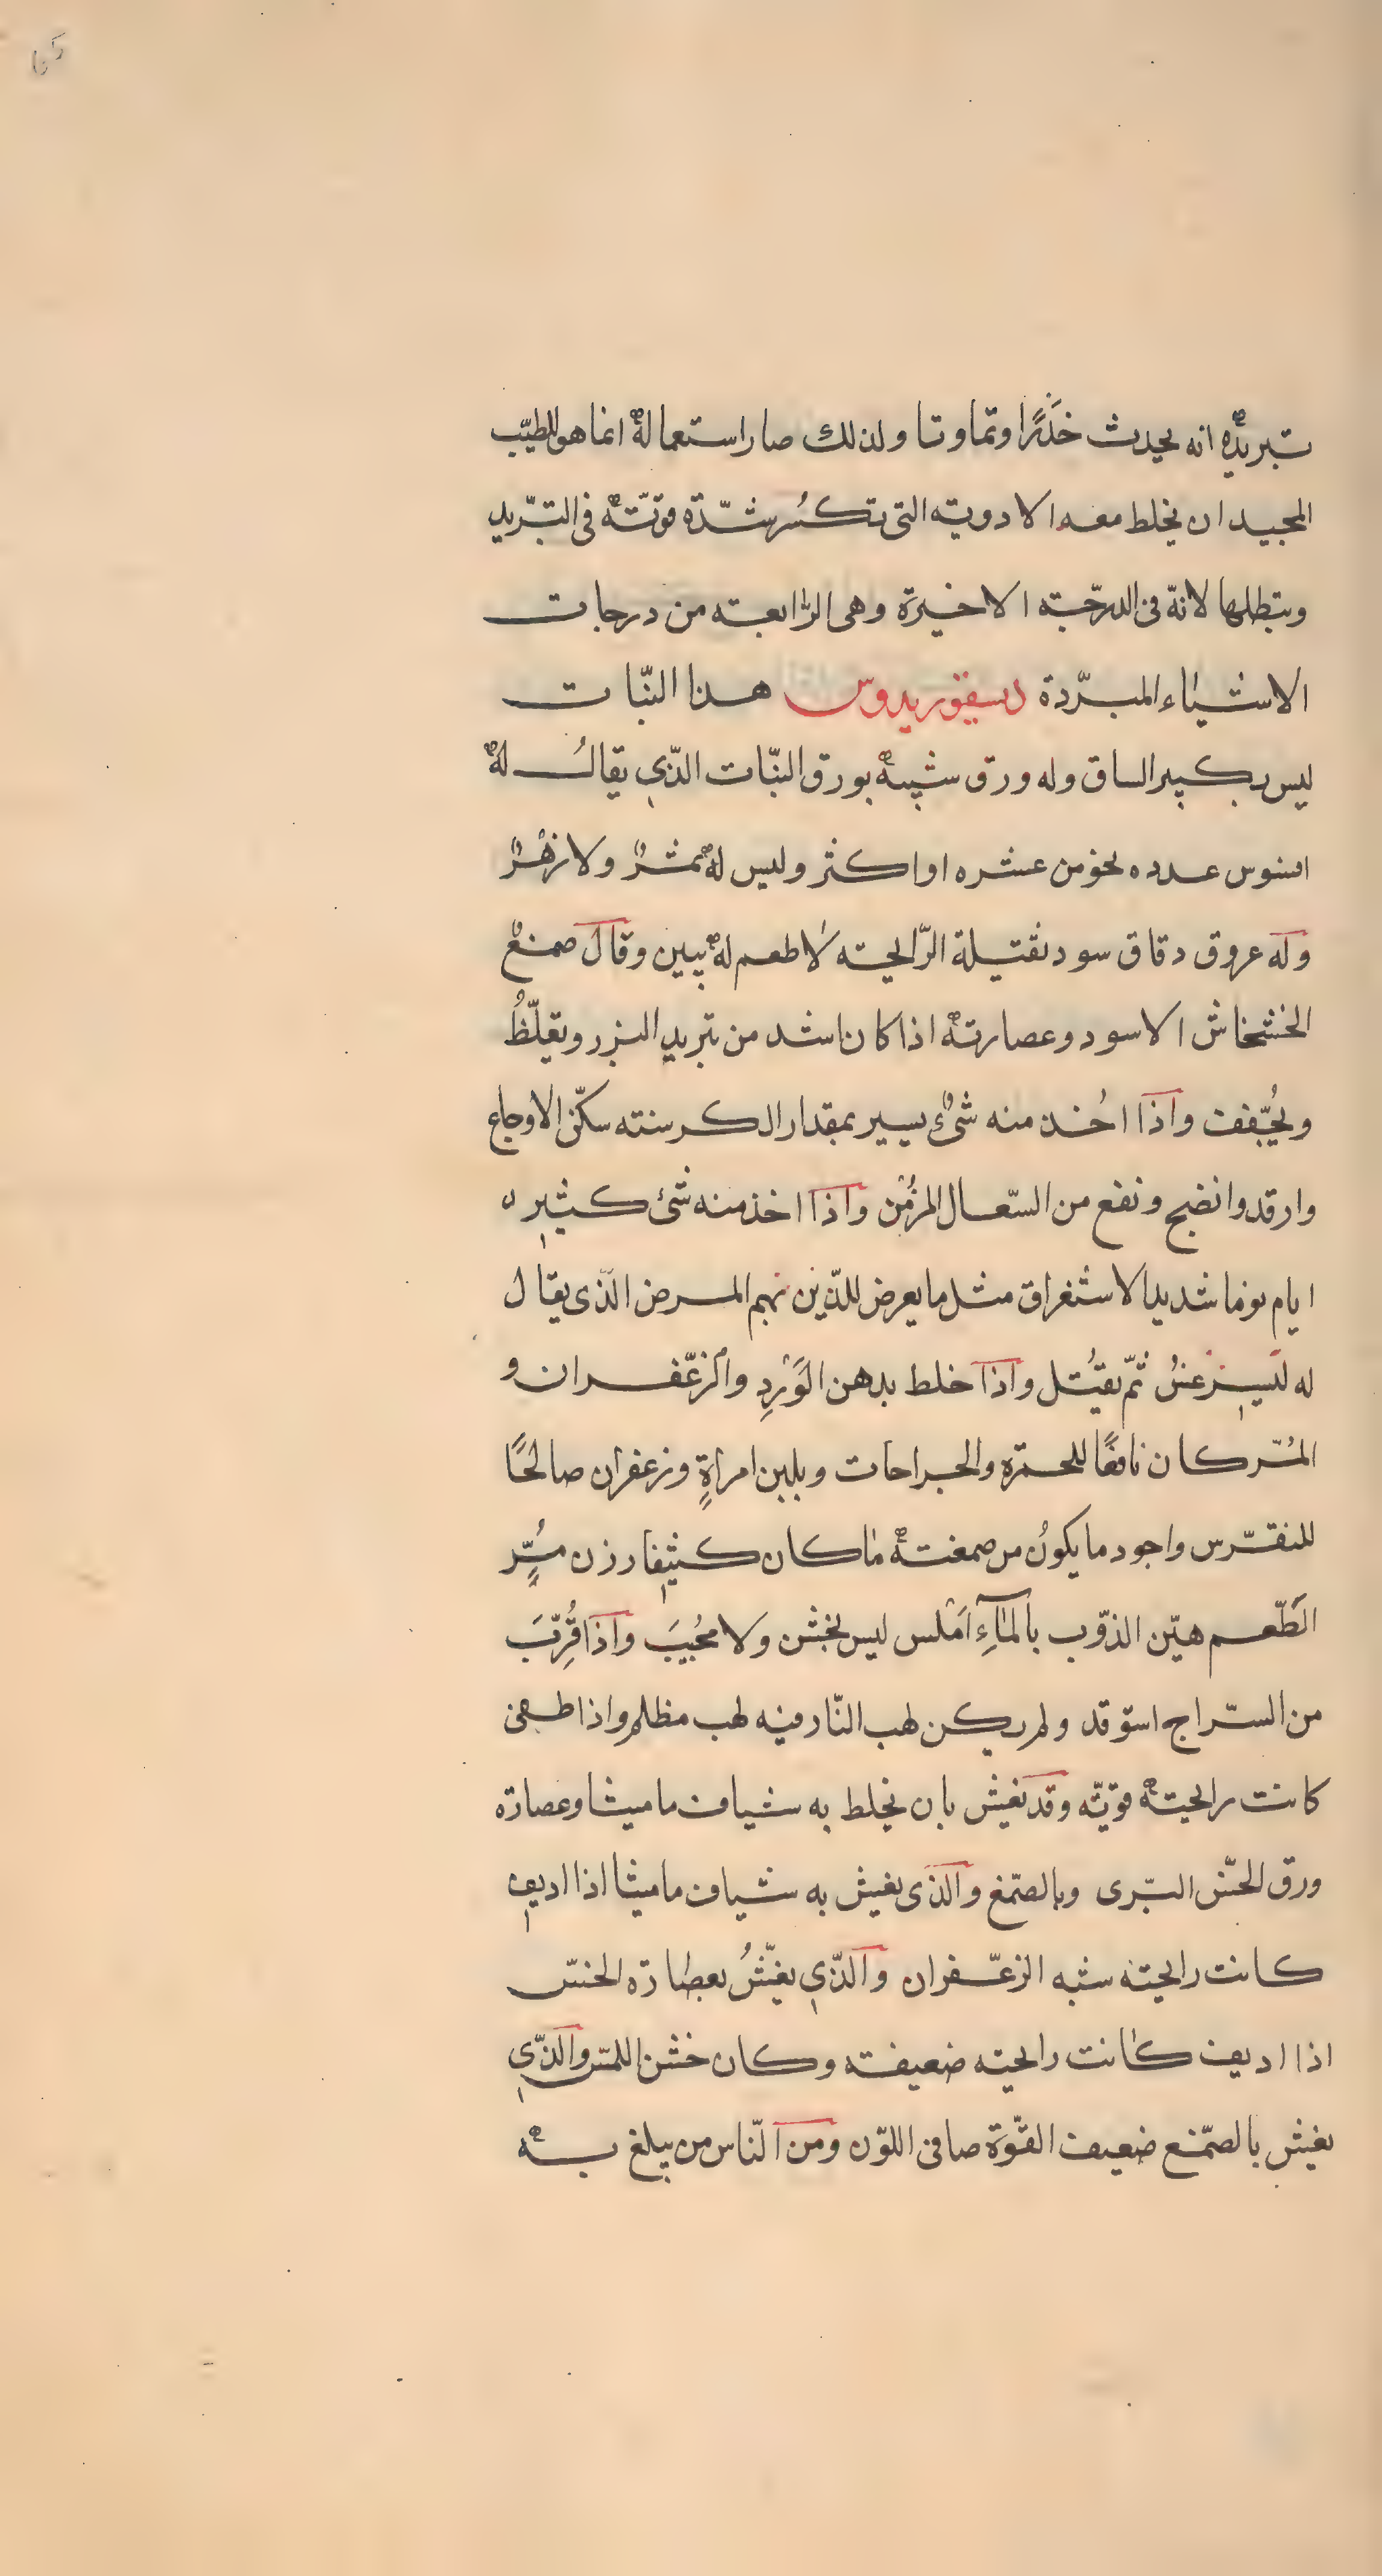 تبريده انه يحدث خَدَرًا وتماوتا ولذلك صار استعماله انما هو للطبيّب
المجيد ان يخلط معه الادوية التى تكسُر شدّة قوّته فى التبّريد
ويبطلها لانهّ فى الدرّجة الاخيرة وهى الرّابعة من درجات
الاشياء المبرّدة ديسقوريدوس هذا النّبات
ليس بكبير الساق وله ورق شبيه بورق النّبات الذّي يقالُ له
عدده نحو من عشره او اكثر وليس له ثمرٌ ولا زهْرٌ
وله عروق دقاق سود ثقيلة الرّايحة لا طعم له يبين وقال صمغٌ
الخشخاش الاسود وعصارته اذا كان اشد من تبريد البزر ويغلّظُ
ويُجّفف واذا اُخذ منه شىٌ يسير بمقدار الكرسنة سكّن الاوجاع
وارقد وانضج ونفع من السّعال المزُمْن واذا اخذ منه شئ كثير
ايام نوما شديدا لاستغراق مثل ما يعرض للذّين بهم المرض الذّى يقال
له ليثرغسُ ثمّ يقتُل واذا خلط بدهن الوَرْدِ والزعّفران و
المُرّ كان نافعًا للحمرّه والجراحات وبلبن امراةٍ وزعفران صالحًا
للنقرّس واجود ما يكونُ من صمغته ما كان كثيفا رزن مُرٍّ
الطّعم هيّن الذوّب بالماۤءِ اَمْلس ليس بخشن ولا محُببَ واذا قُرِّبَ
من السّراج استوقد ولم يكن لهب النّار منه لهب مظلم واذا طفئ
كانت رايحته قوّيه وقد يغش بان يخلط به شياف ماميثا وعصارة
ورق الخسّ البّرى وبالصمّغ والذى يغيش به شياف ماميثا اذا اديف
كانت رايحته شبه الزعّفران والذّي يغّشُ بعصارة الخسّ
اذا اديف كانت رايحته ضعيفة وكان خشن اللمسّ والذّي
يغيش بالصمّغ ضعيف القّوة صافى اللوّن ومن النّاس من يبلغ به